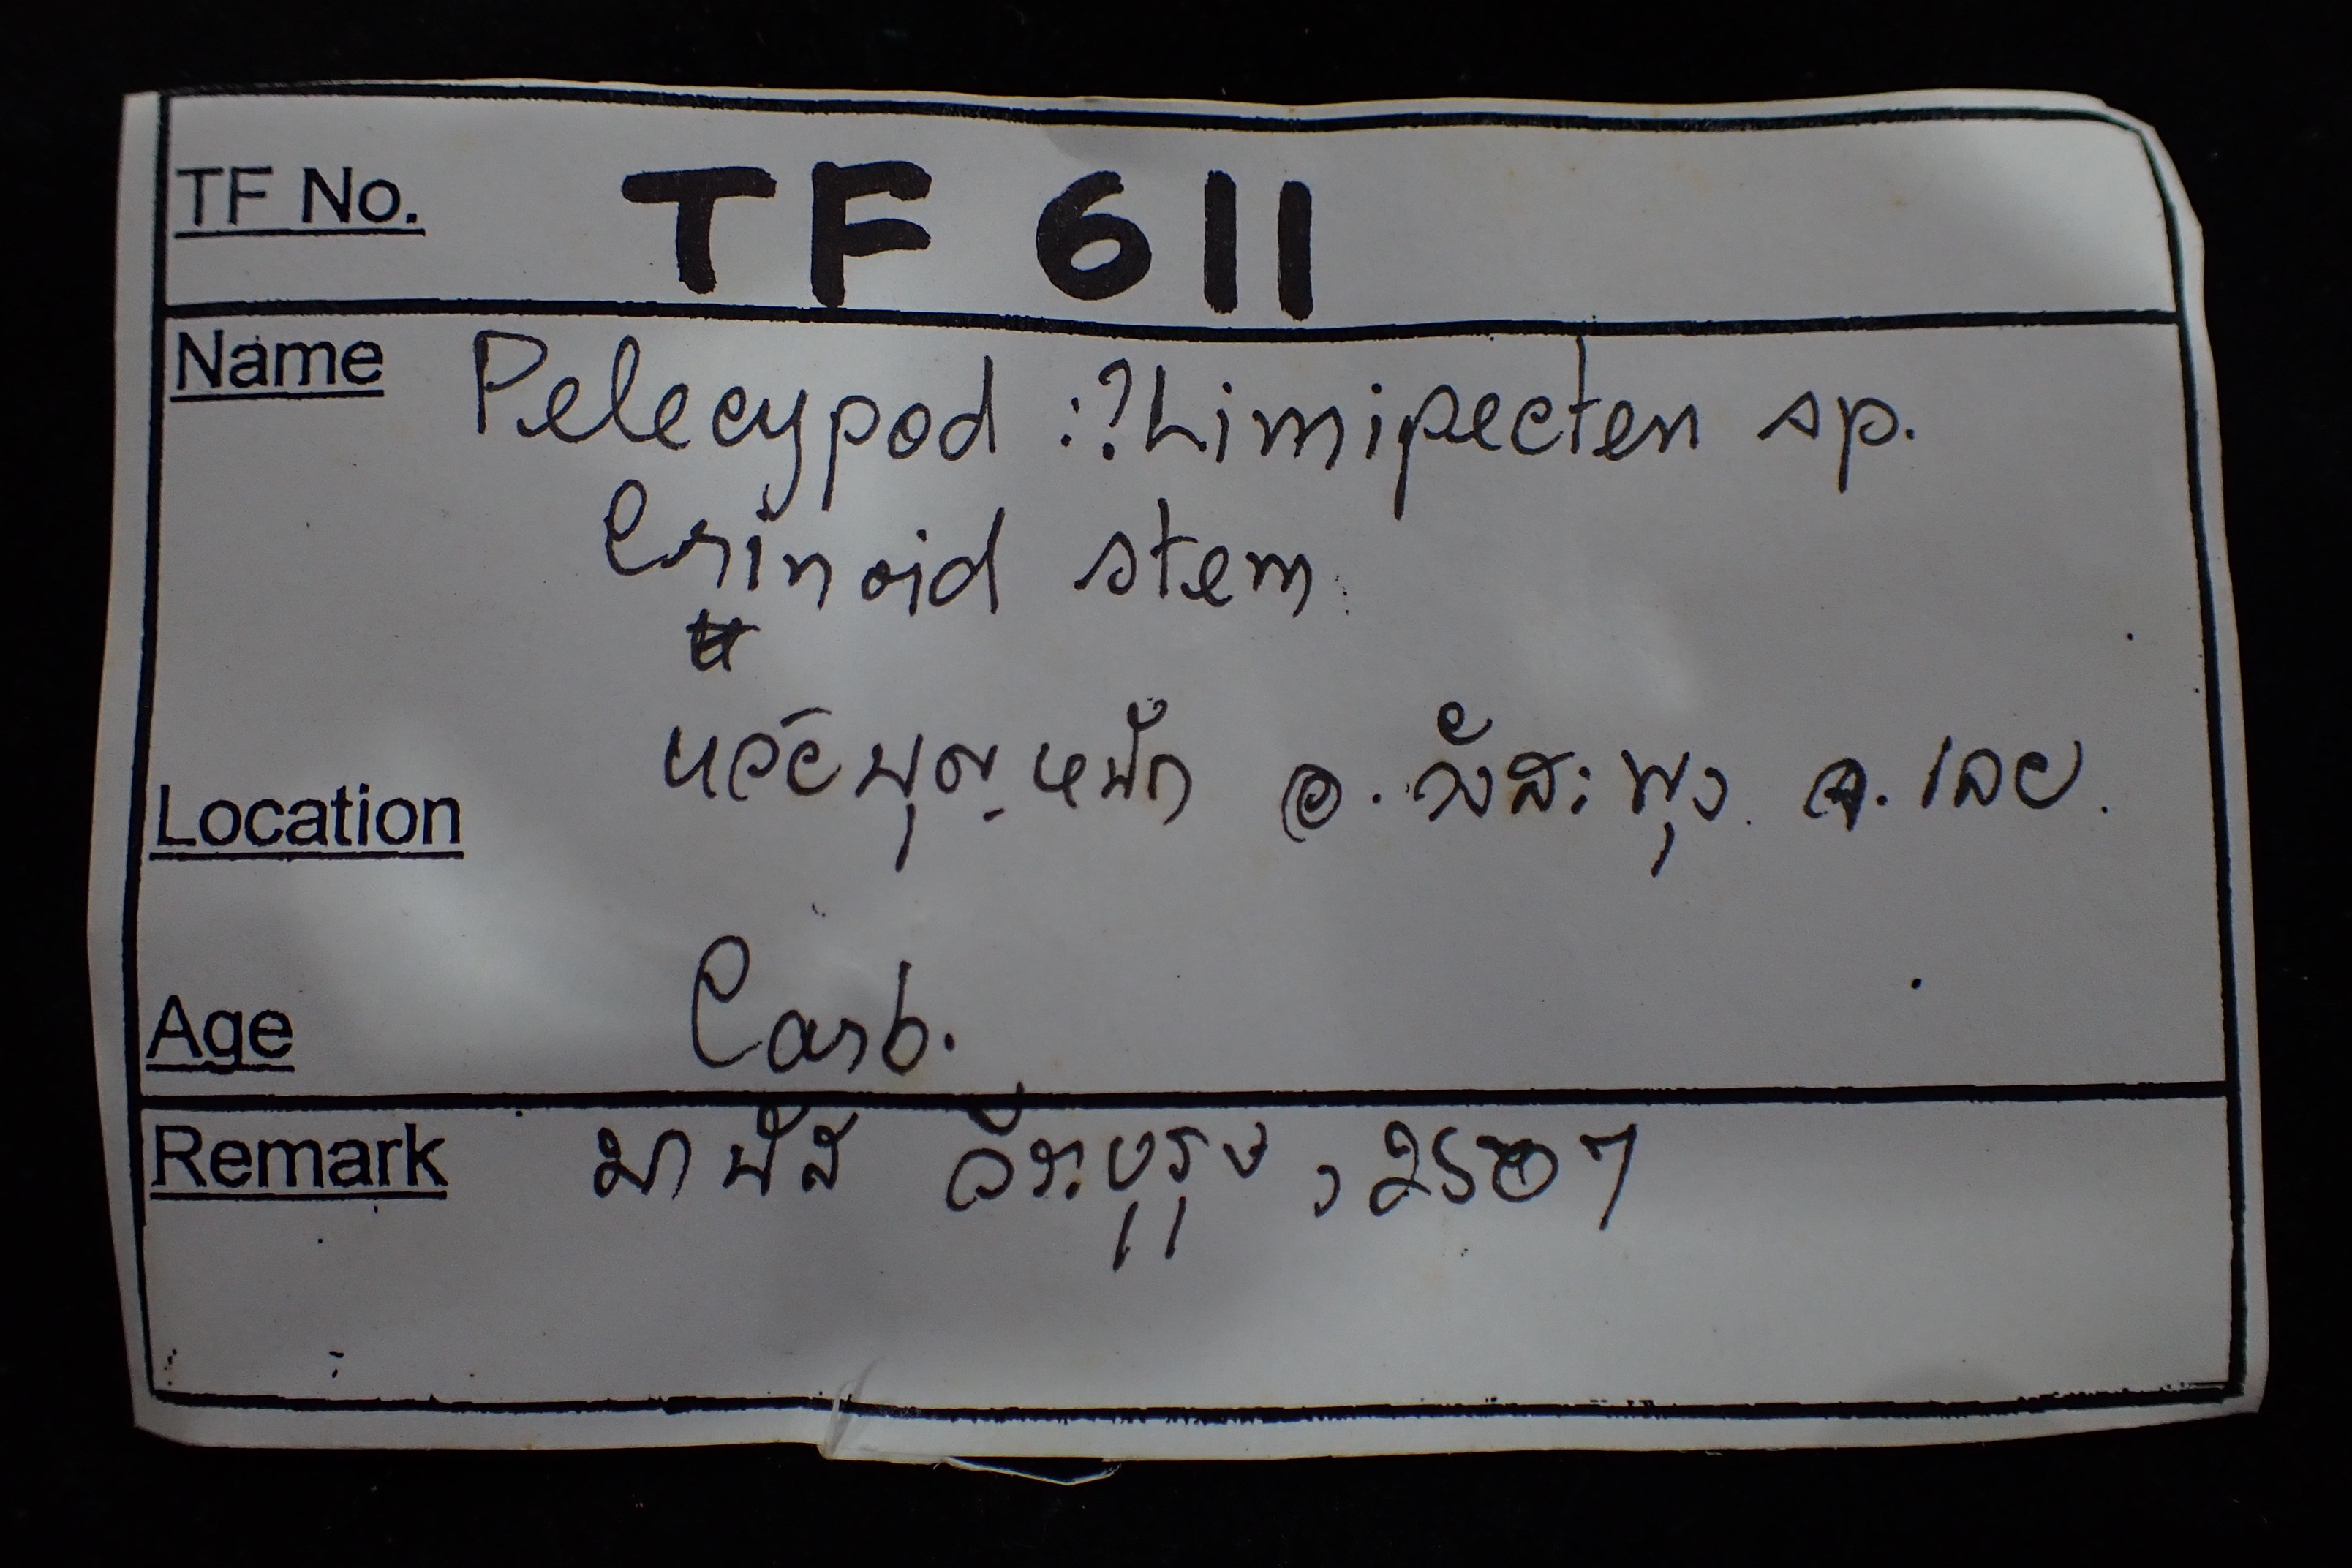 TF No. TF 611
Name Pelecypod : ?Limipecten sp.
Crinoid stem
Location อ. วังสะพุง จ. เลย.
Age Carb.
Remark มานัส วีระบุรุษ, 2507